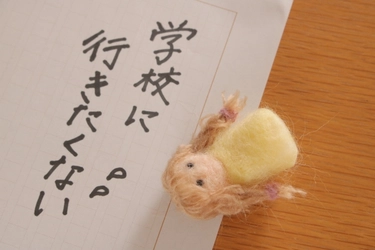 学校に
行きたくない
。。